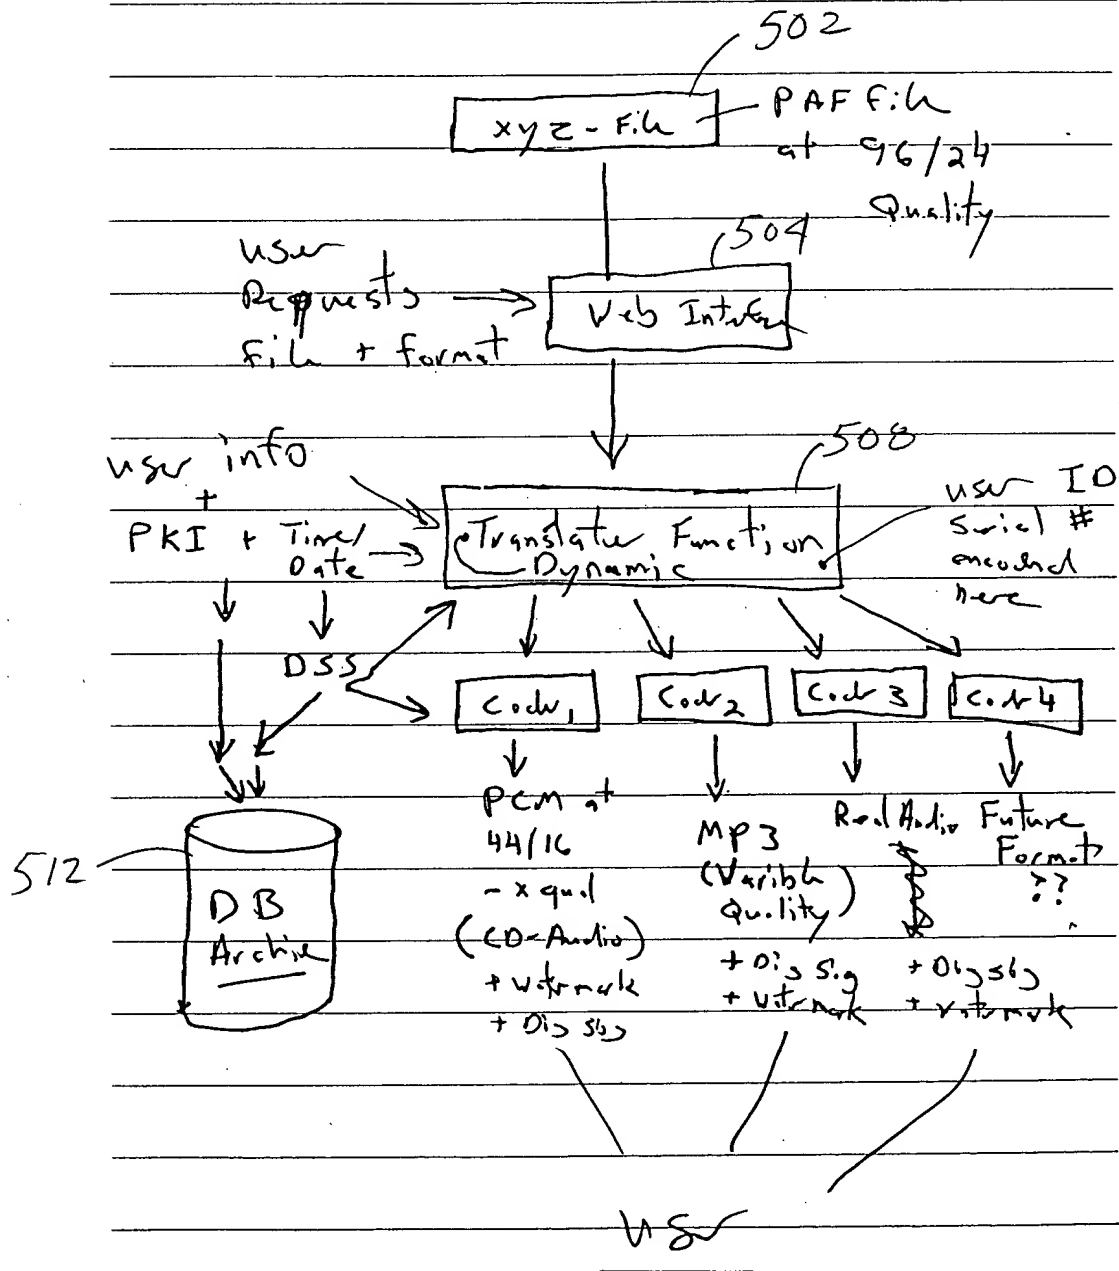 502
xyz - File
PAF File
at 96/24
Quality
504
User
Requests
File + format
Web Interface
508
user info
+
PKI + Time/
Date
Translator Function
Dynamic
user ID
Serial #
encoded
here
DSS
Coder 1
Coder 2
Coder 3
Coder 4
512
DB
Archive
PCM at
44/16
- x qual
(CD-Audio)
+ watermark
+ Dig sig
MP3
(Varible
Quality)
+ Dig Sig
+ Watermark
Real Audio
Future
Format
??
+ Dig sig
+ watermark
User